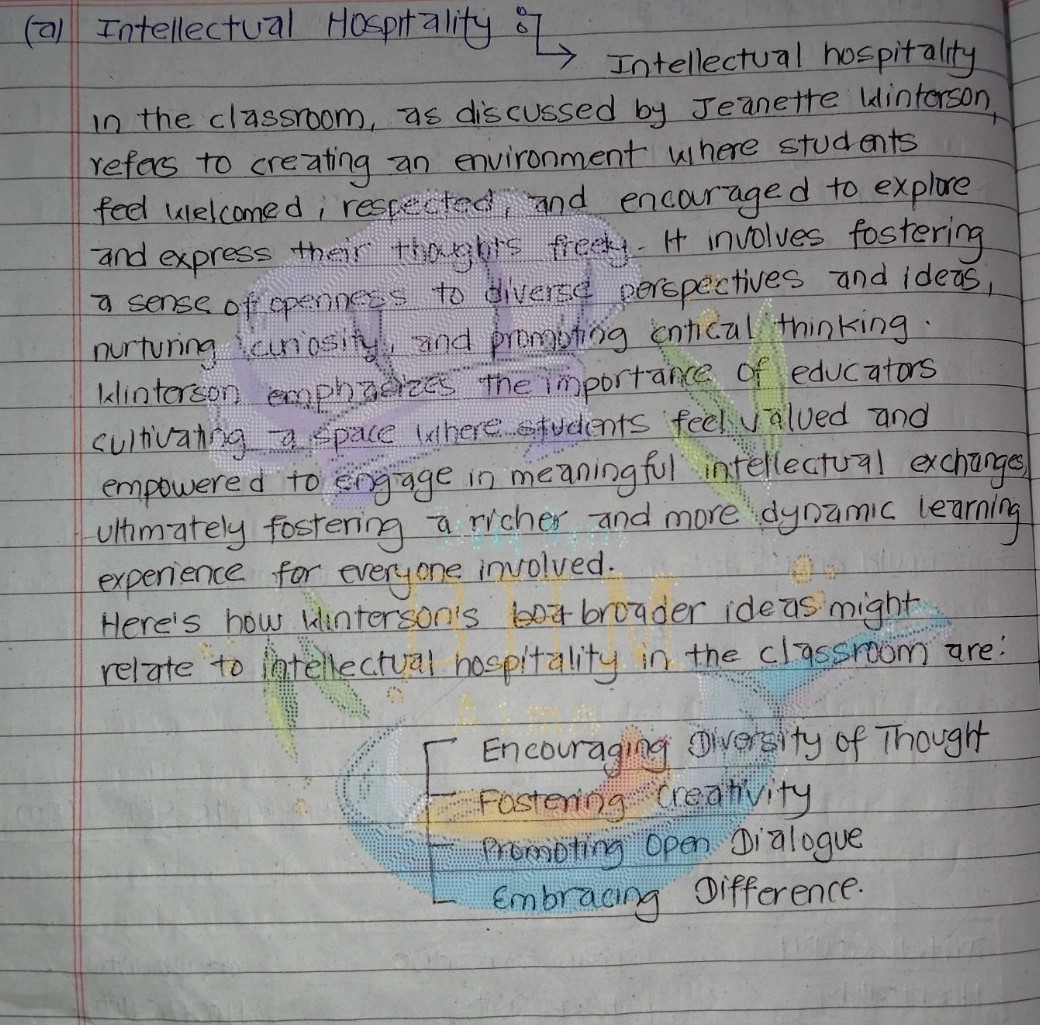 (a) Intellectual Hospitality :
Intellectual hospitality
in the classroom, as discussed by Jeanette Winterson,
refers to creating an environment where students
feel welcomed, respected, and encouraged to explore
and express their thoughts freely. It involves fostering
a sense of openness to diverse perspectives and ideas,
nurturing curiosity, and promoting critical thinking.
Winterson emphasizes the importance of educators
cultivating a space where students feel valued and
empowered to engage in meaningful intellectual exchanges,
ultimately fostering a richer and more dynamic learning
experience for everyone involved.
Here's how Winterson's broader ideas might
relate to intellectual hospitality in the classroom are:
BHM
Encouraging Diversity of Thought
Fostering Creativity
Promoting Open Dialogue
Embracing Difference.